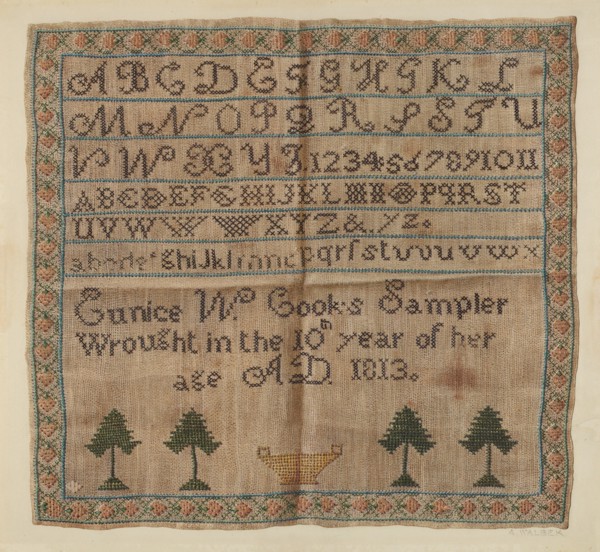 A B C D E F G H I K L
M N O P Q R S T U
V W X Y Z. 1234567891011
ABCDEFGHIJKLMNOPQRST
UVW XYZ&.
ghijkl pqrſstuvwx
Eunice W. Cooks Sampler
Wrought in the 10th year of her
age A.D. 1813.